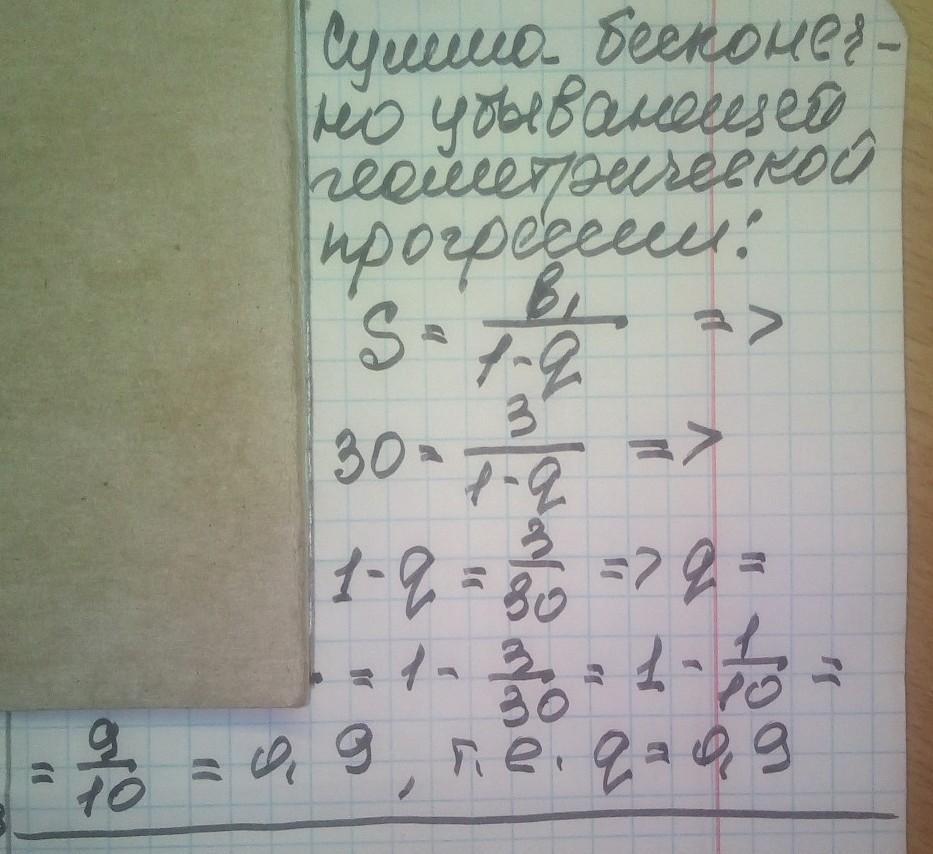 Сумма бесконеч-
но убывающей
геометрической
прогрессии:
S = b₁/(1-q) =>
30 = 3/(1-q) =>
1-q = 3/30 => q =
= 1 - 3/30 = 1 - 1/10 =
= 9/10 = 0,9, т.е. q = 0,9